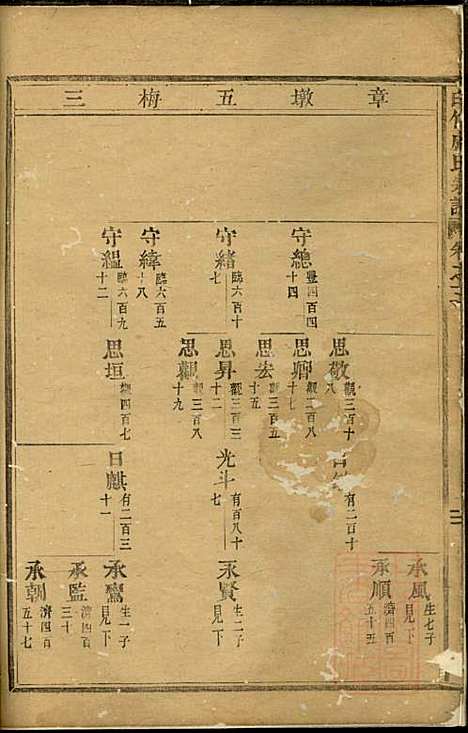 章墩五梅三
守總 豐四百四十四
守緒 臨六百十七
守緯 臨六百五十八
守縕 臨六百九十二
思敬 觀三百十八
思卿 觀三百八十七
思宏 觀三百三十五
思昇 觀三百三十二
思觀 觀三百八十九
思垣 觀四百七
有二百十
光斗 有百八十七
日麒 有二百三十一
承風 生七子見下
承順 濟四百五十五
承賢 生二子見下
承鸞 生一子見下
承監 濟四百三十
承朝 濟四百五十七
氏宗譜
卷之二